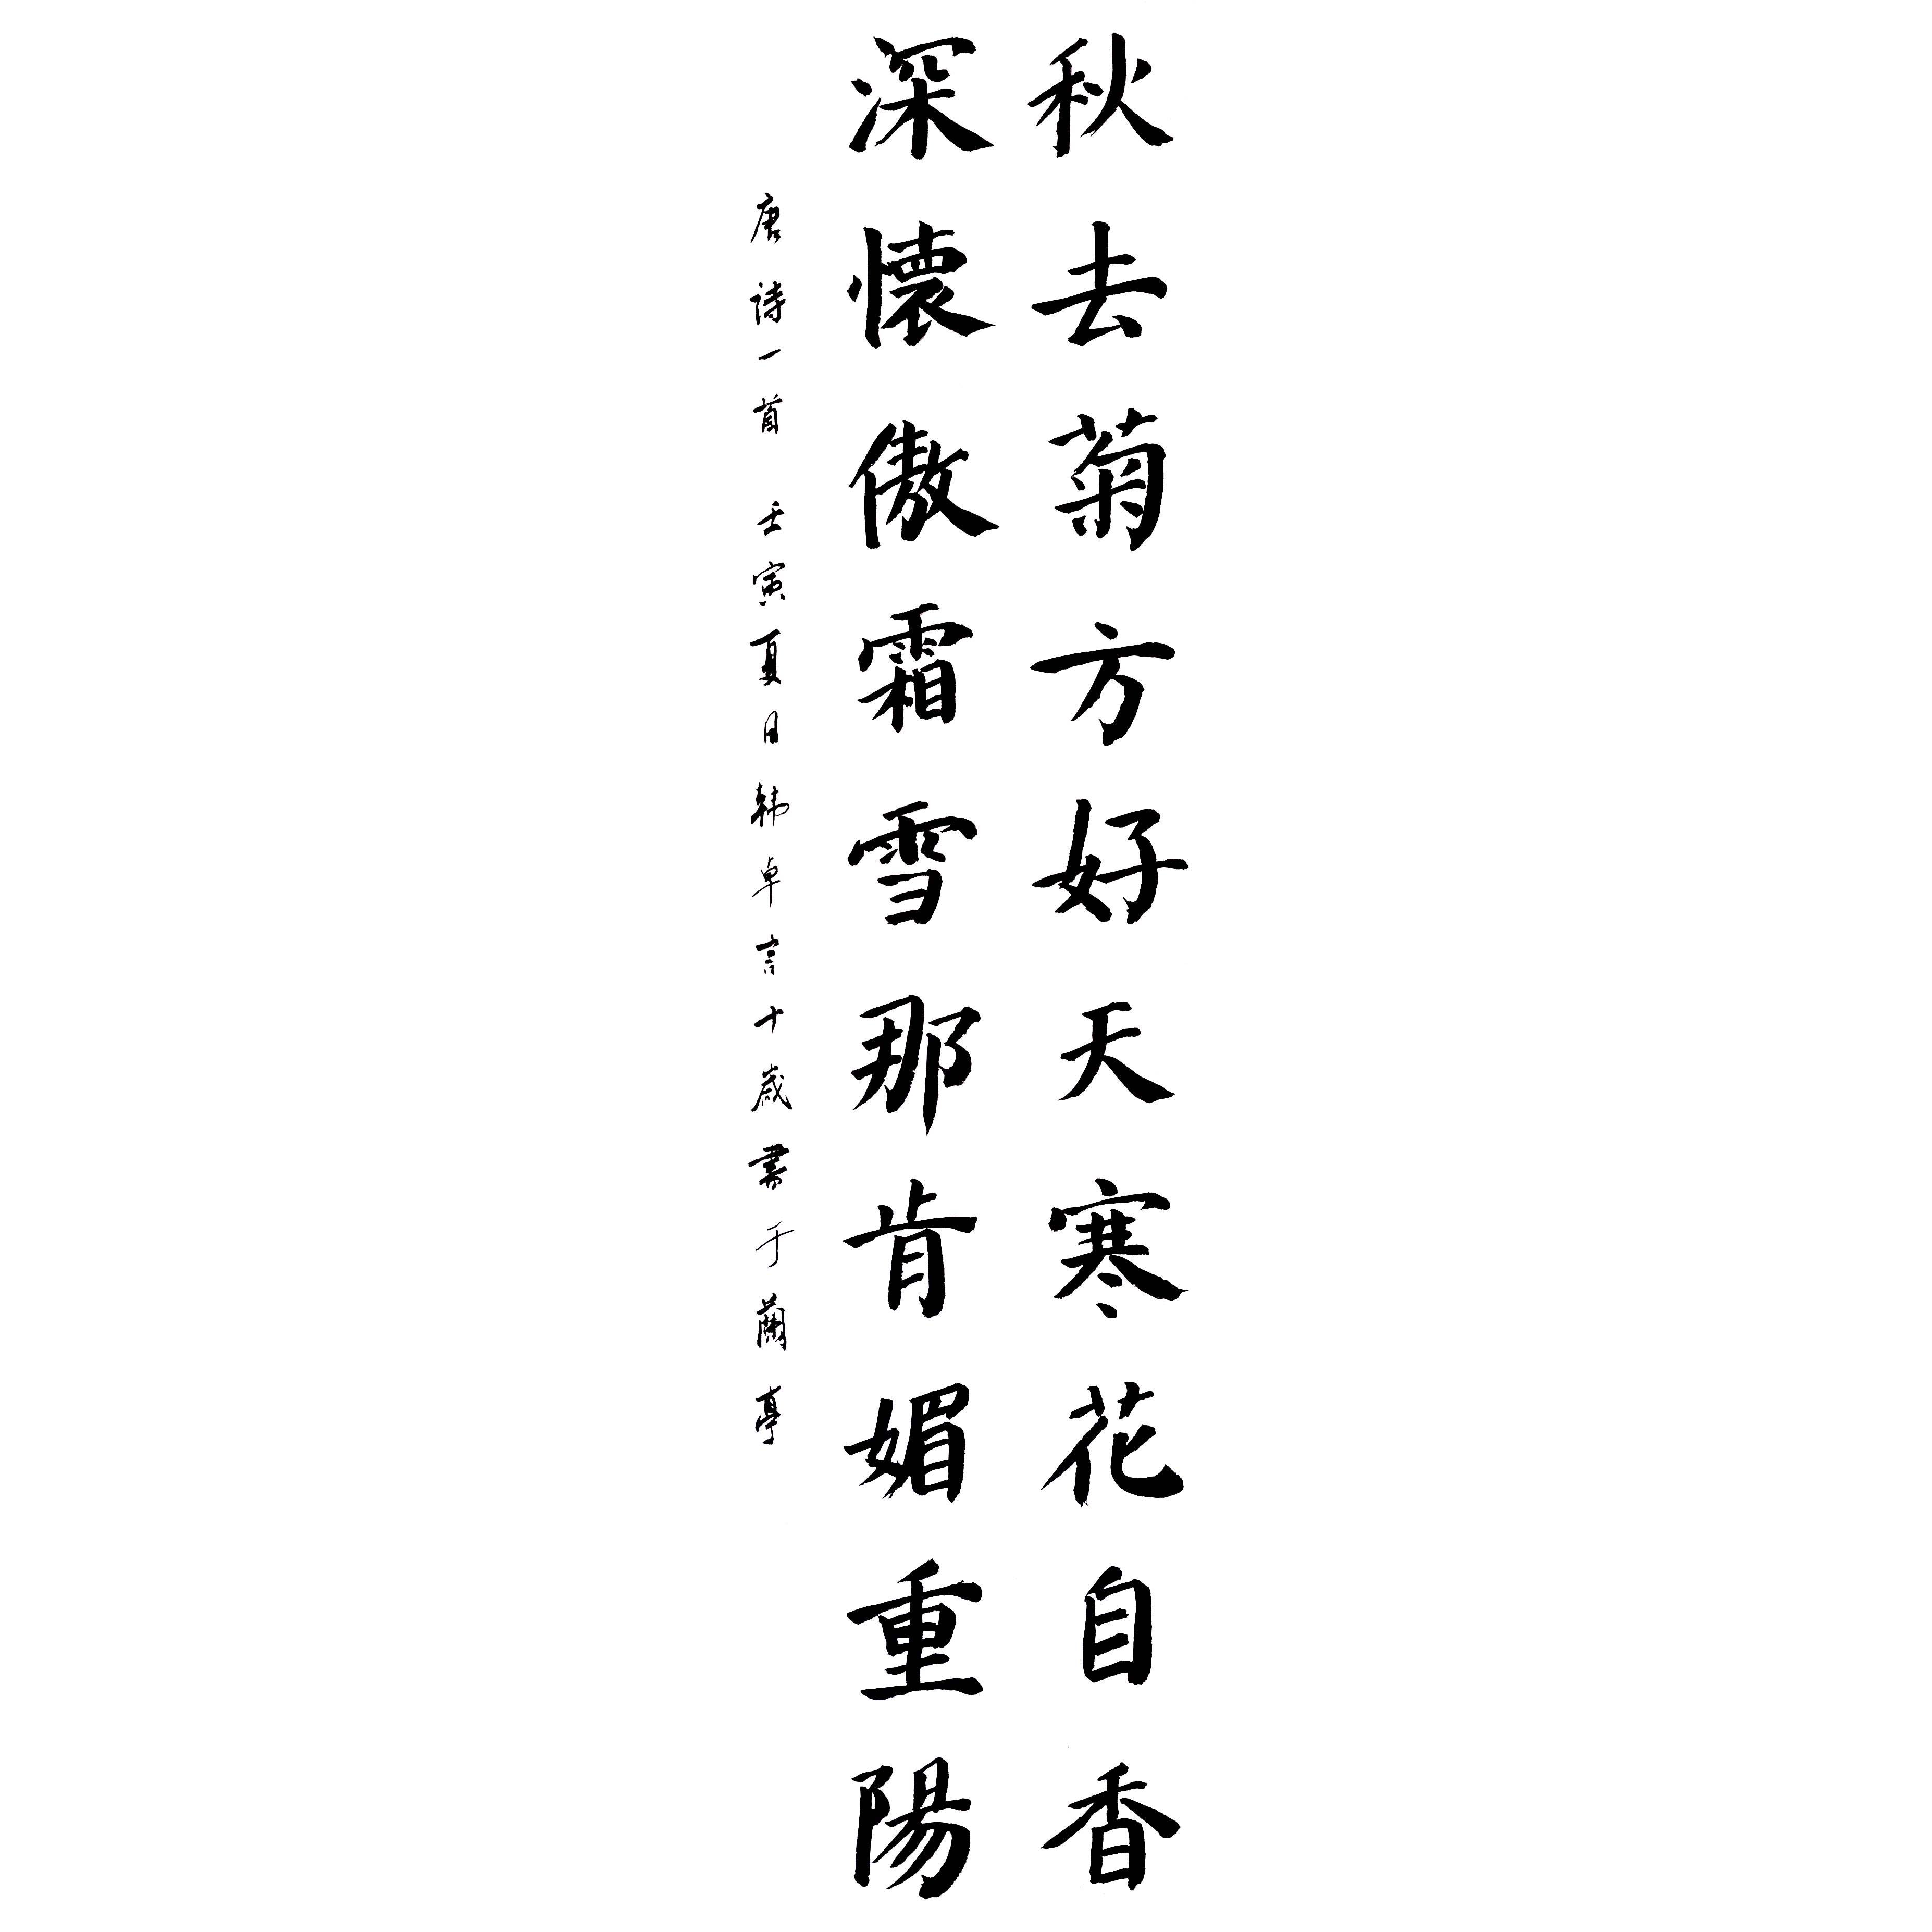 秋去菊方好天寒花自香
深懷傲霜雪那肯媚重陽
唐詩一首 壬寅夏月 年 十歲書于蘭亭